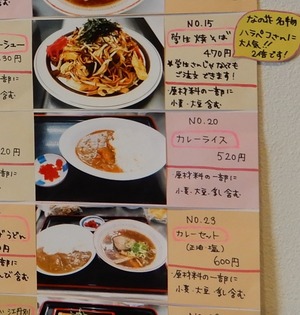 ーシュー
30円
に
含む
NO.15
学生焼そば
470円
※学生さんじゃなくても
ご注文できます!
原材料の一部に
小麦・大豆・含む
なの花名物
ハラペコさんに
大人気!!
2倍です!
20円
に
含む
NO.20
カレーライス
520円
原材料の一部に
小麦・大豆・乳含む
うどん
円
部に
含む
NO.23
カレーセット
600円
原材料の一部に
小麦・大豆・乳含む